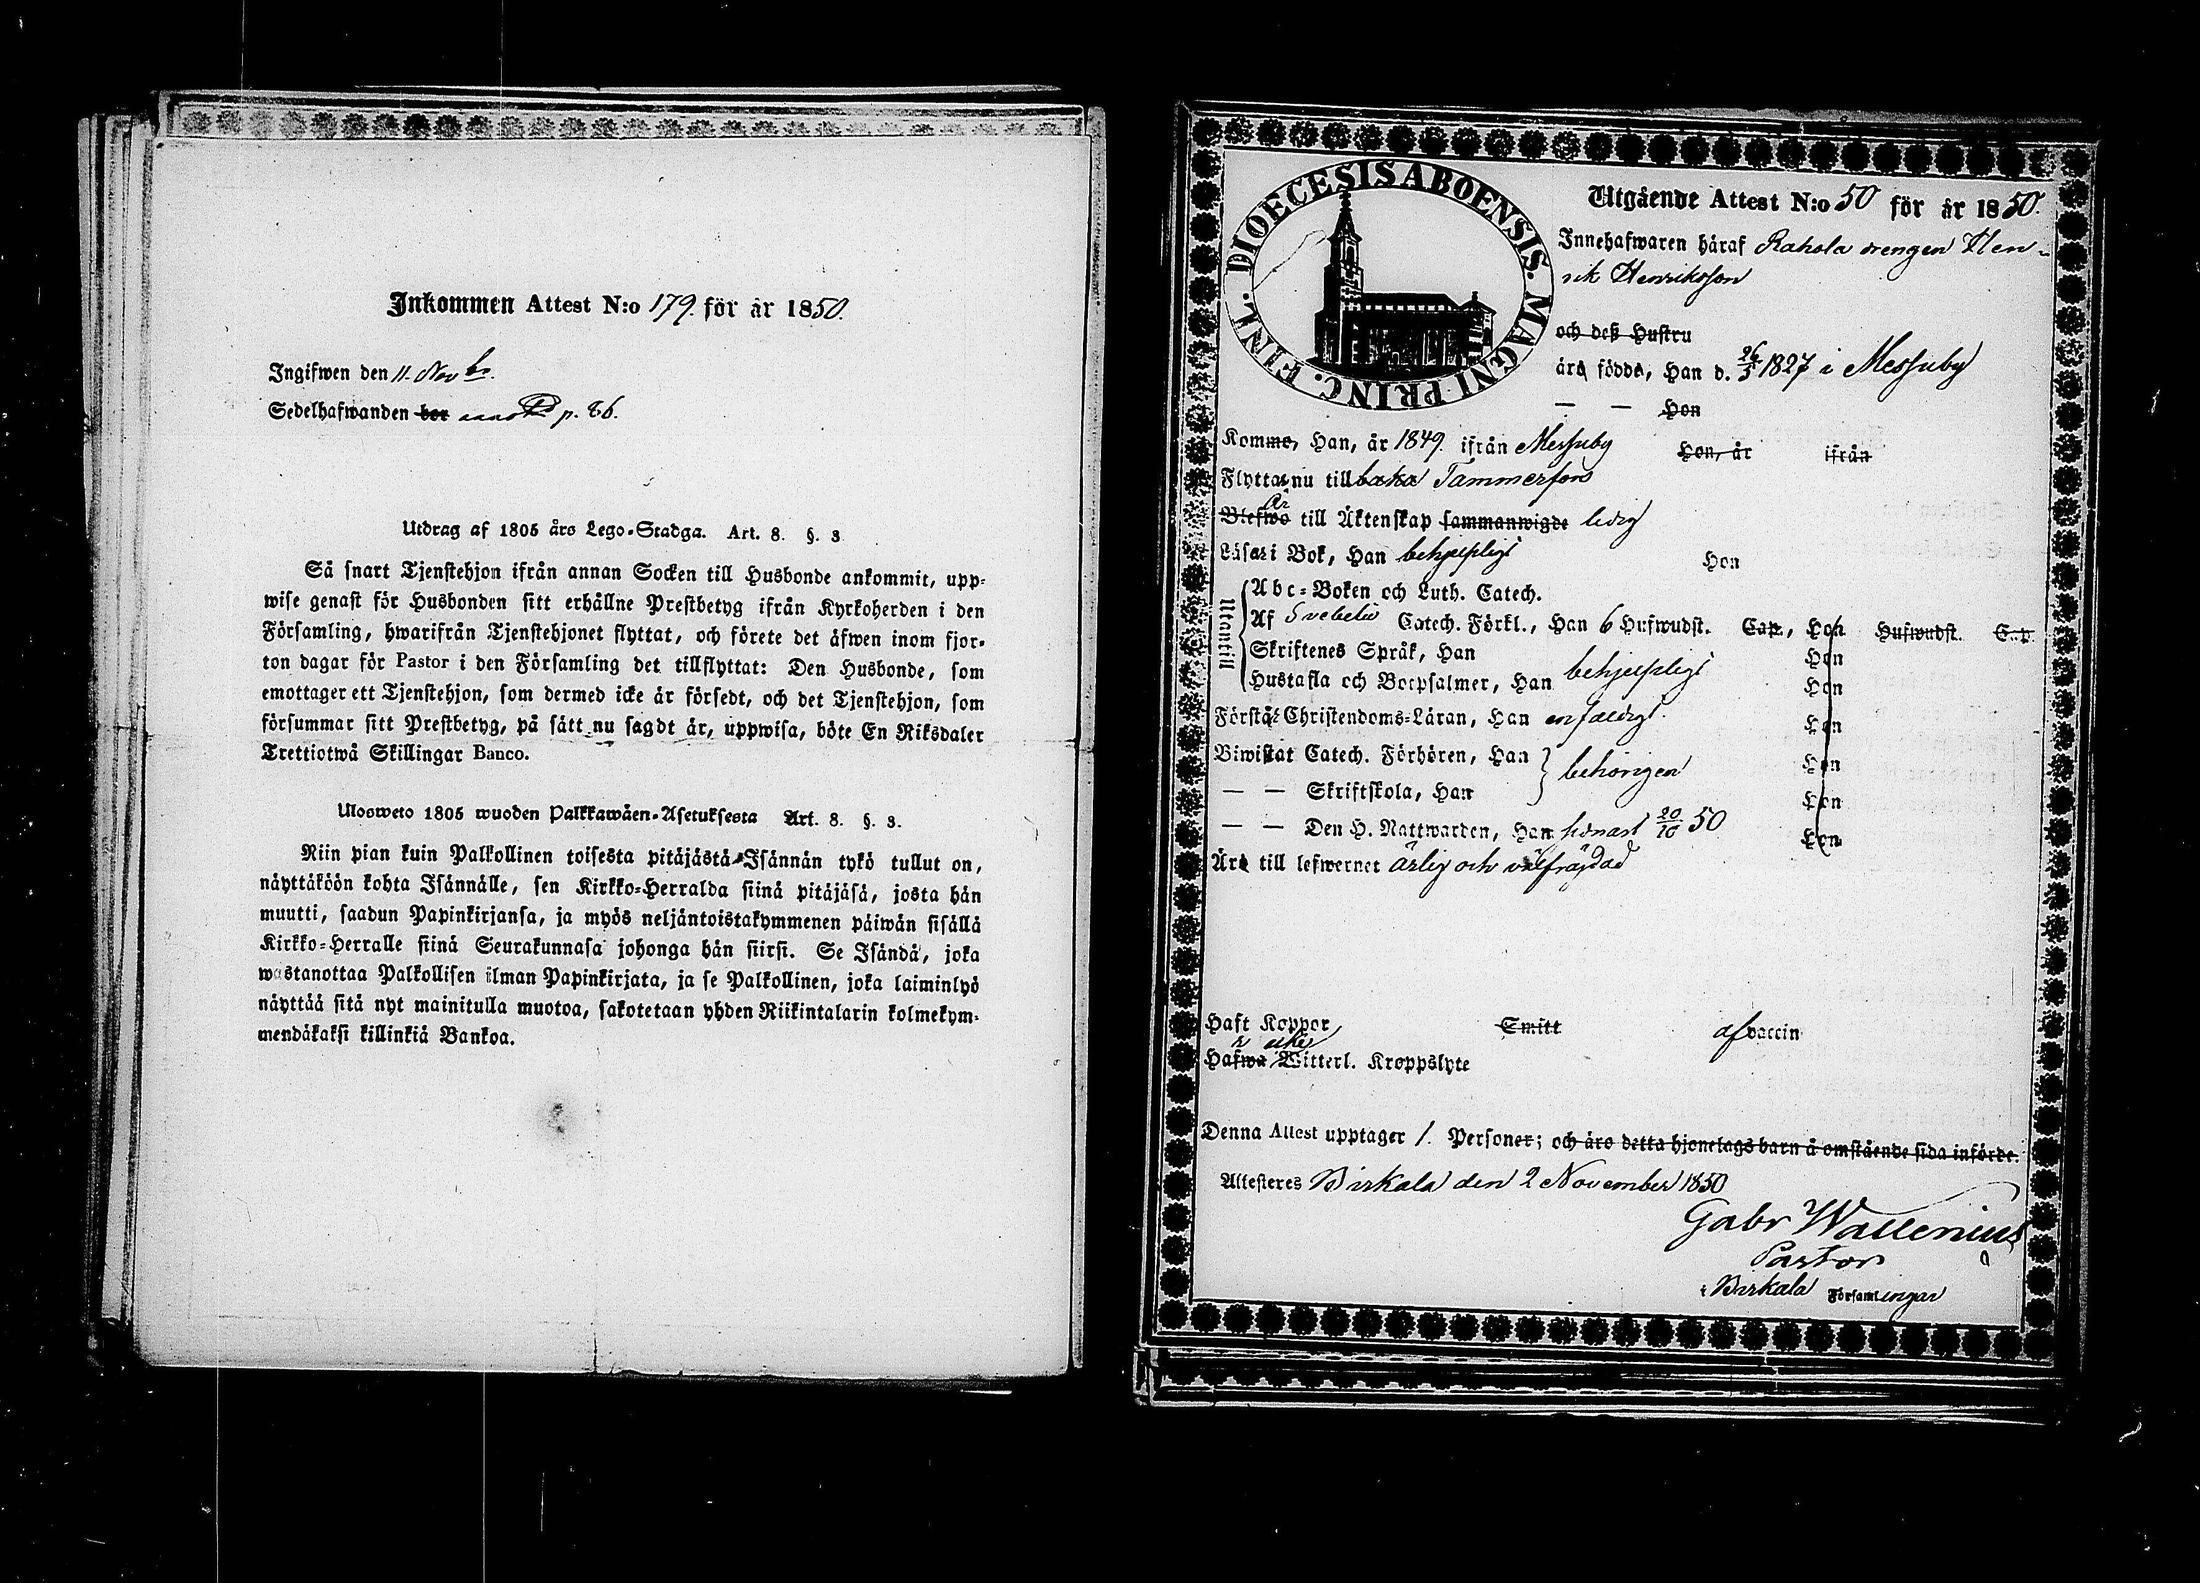 Inkommen Attest N:o 179. för år 1850.
Ingifwen den 11. Novbr.
Sedelhafwanden bor p. 86.
Utdrag af 1805 års Lego-Stadga. Art. 8. §. 3
Så snart Tjenstehjon ifrån annan Socken till Husbonde ankommit, upp-
wise genast för Husbonden sitt erhållne Prestbetyg ifrån Kyrkoherden i den
Församling, hwarifrån Tjenstehjonet flyttat, och förete det äfwen inom fjor-
ton dagar för Pastor i den Församling det tillflyttat: Den Husbonde, som
emottager ett Tjenstehjon, som dermed icke är försedt, och det Tjenstehjon, som
försummar sitt Prestbetyg, på sätt nu sagdt är, uppwisa, böte En Riksdaler
Trettiotwå Skillingar Banco.
Ulosweto 1805 wuoden Palkkawäen-Asetuksesta Art. 8. §. 3.
Niin pian kuin Palkollinen toisesta pitäjästä Isännän tykö tullut on,
näyttäköön kohta Isännälle, sen Kirkko-Herralda siinä pitäjäsä, josta hän
muutti, saadun Papinkirjansa, ja myös neljäntoistakymmenen päiwän sisällä
Kirkko-Herralle siinä Seurakunnasa johonga hän siirsi. Se Isändä, joka
wastanottaa Palkollisen ilman Papinkirjata, ja se Palkollinen, joka laiminlyö
näyttää sitä nyt mainitulla muotoa, sakotetaan yhden Riikintalarin kolmekym-
mendäkaksi killinkiä Bankoa.
DIOECESIS ABOENSIS. MAGNI PRINC. FINL.
Utgående Attest N:o 50 för år 1850.
Innehafwaren häraf Rahola drengen Hen-
rik Henriksson
och deß Hustru
äro födde, Han d. 26/3 1827 i Messuby
— — Hon
Komme, Han, år 1849. ifrån Messuby Hon, år ifrån
Flyttar nu tillbaka Tammerfors
Är
Blefwo till Äktenskap sammanwigde ledig
Läser i Bok, Han behjelpligt Hon
Utantill
Abc-Boken och Luth. Catech.
Af Svebelii Catech. Förkl., Han 6 Hufwudst. Cap., Hon Hufwudst. Cap.
Skriftenes Språk, Han Hon
Hustafla och Botpsalmer, Han behjelpligt Hon
Förstår Christendoms-Läran, Han enfaldigt. Hon
Biwistat Catech. Förhören, Han behörigen Hon
— — Skriftskola, Han Hon
— — Den H. Nattwarden, Han senast 20/10 50 Hon
Äro till lefwernet ärlig och välfrägdad
Haft Koppor Smitt af vaccin
r icke
Hafwa Witterl. Kroppslyte
Denna Attest upptager 1. Personer; och äro detta hjonelags barn å omstående sida införde.
Attesteres Birkala den 2 November 1850
Gabr Wallenius
Pastor
i Birkala Församlingar